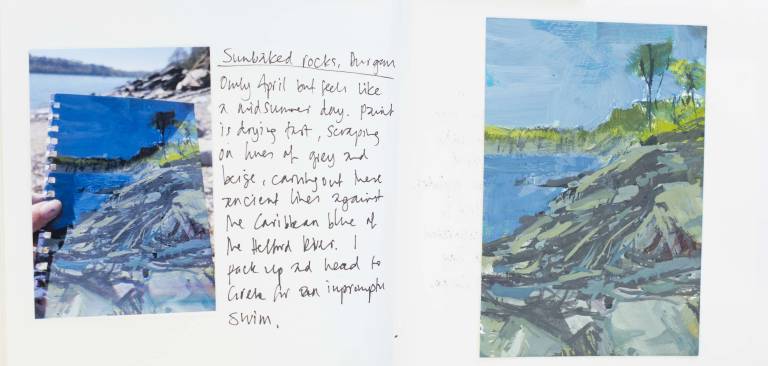 Sunbaked rocks, Durgan
Only April but feels like
a midsummer day. Paint
is drying fast, scraping
on lines of grey and
beige, carving out these
ancient lines against
the Caribbean blue of
the Helford River. I
pack up and head to
Grebe for an impromptu
swim.